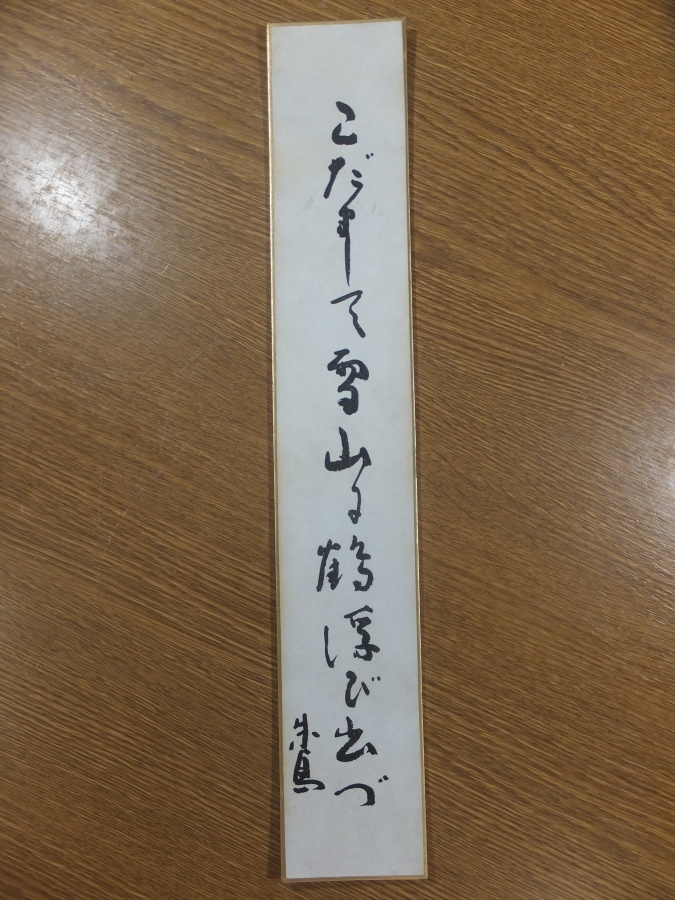 こだまして雪山に鶴浮び出づ
朱鳥